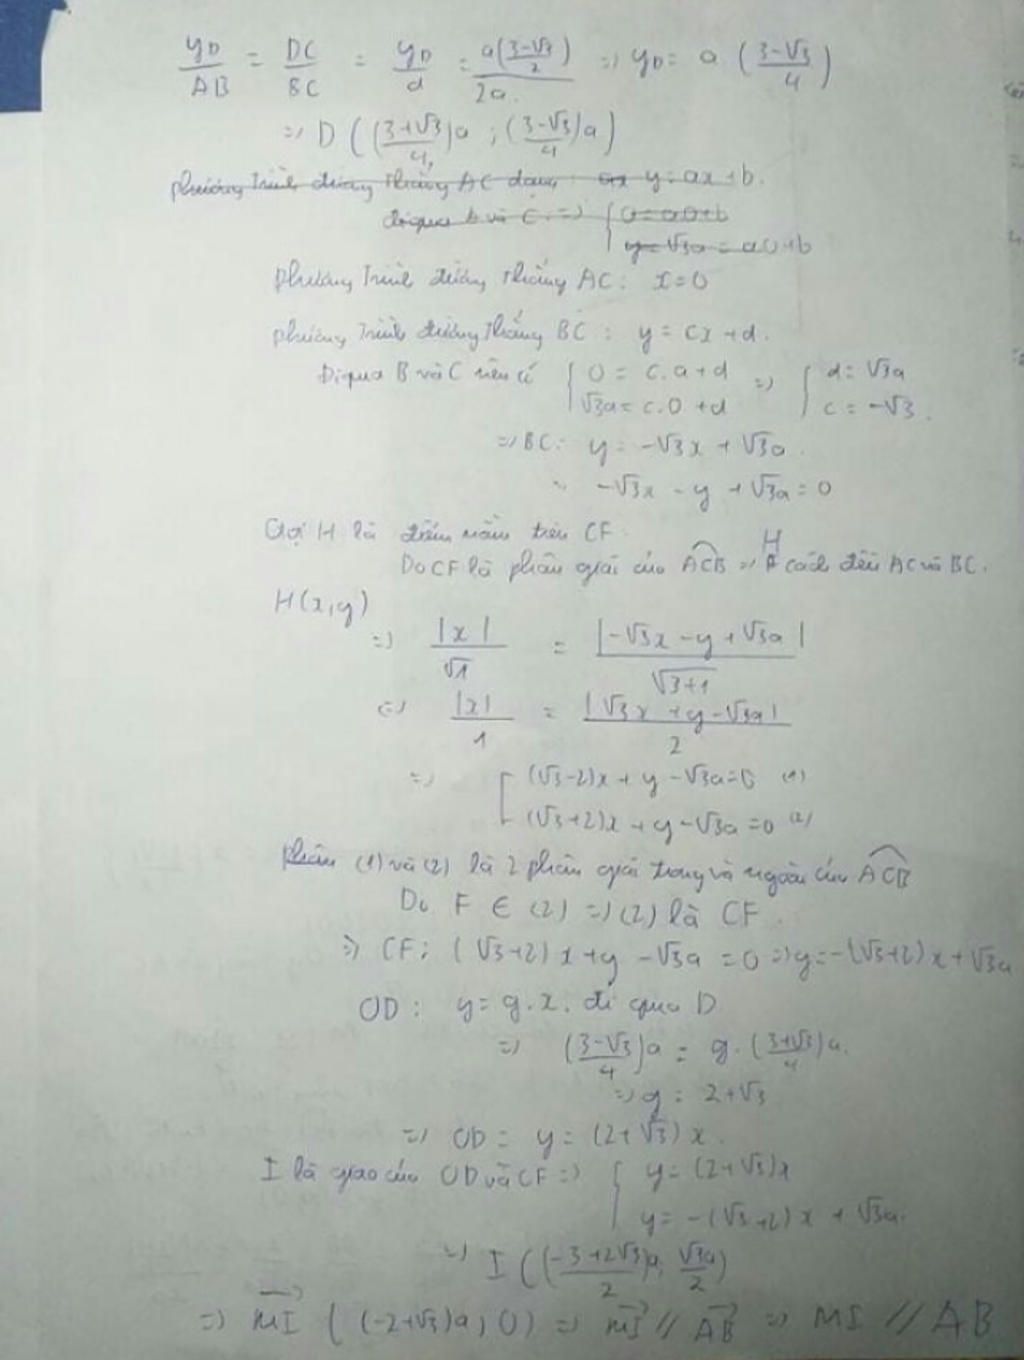 yD/AB = DC/BC = yD/a = a(3-√3/2)/2a. => yD = a (3-√3/4)
=> D ((3+√3/4)a ; (3-√3/4)a)
phương trình đường thẳng AC dạng: ax y=ax+b.
đi qua A và C => { 0=a0+b
y=√3a = a0+b
phương trình đường thẳng AC: x=0
phương trình đường thẳng BC: y = cx+d.
Đi qua B và C nên có { 0 = c.a+d
√3a = c.0 +d => { d = √3a
c = -√3.
=> BC: y = -√3x + √3a.
-√3x - y + √3a = 0
Gọi H là điểm nằm trên CF.
Do CF là phân giác của ACB => H cách đều AC và BC.
H(x,y)
=> |x|/√1 = |-√3x - y + √3a|/√3+1
<=> |x|/1 = |√3x + y - √3a|/2
=> [ (√3-2)x + y - √3a = 0 (1)
(√3+2)x + y - √3a = 0 (2)
phân (1) và (2) là 2 phân giác trong và ngoài của ACB
Do F ∈ (2) => (2) là CF.
=> CF: (√3+2)x + y - √3a = 0 => y = -(√3+2)x + √3a
OD: y = g.x. đi qua D
=> (3-√3/4)a = g.(3+√3/4)a.
=> g = 2+√3
=> OD = y = (2+√3)x.
I là giao của OD và CF => { y = (2+√3)x
y = -(√3+2)x + √3a.
=> I ((-3+2√3/2)a; √3a/2)
=> MI ((-2+√3)a; 0) => MI // AB => MI // AB